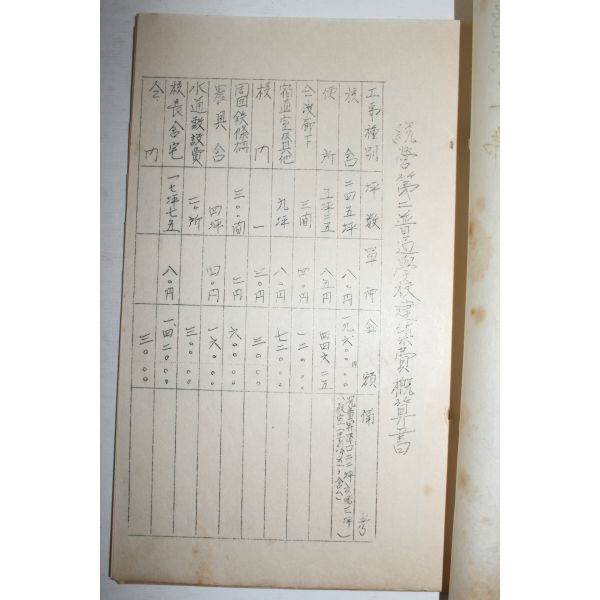 統營第二普通學校建築費概算書
工事種別 坪數 單価 金額 備考
校舍 二四五坪 八〇円 一九六〇〇円〇〇
便所 八五円 四四六二五
仝渡廊下 三間 四〇円 一二〇〇〇
宿直室及其他 九坪 八〇円 七二〇〇〇
校門 一 三〇円 三〇〇〇
周囲鉄條網 三〇〇間 二円 六〇〇〇〇
農具舍 四坪 四〇円 一六〇〇〇
水道敷設費 二〇所 三〇〇〇〇
校長舍宅 一七坪七五 八〇円 一四二〇〇〇
仝門 三〇〇〇